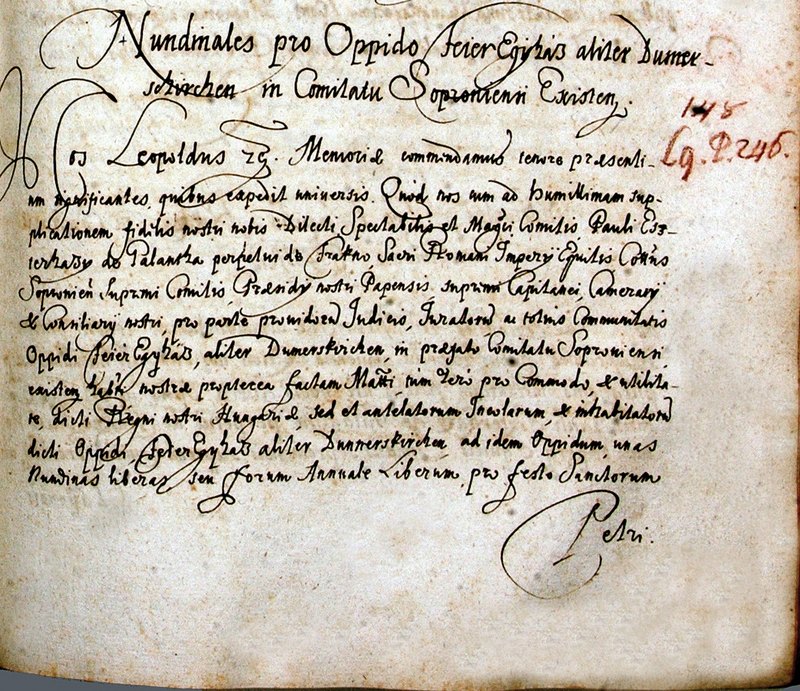 Nundinales pro Oppido FeierEgyház aliter Dumer-
skirchen in Comitatu Soproniensi Existen.
148
Cq. P. 246.
Nos Leopoldus Memoriæ commendamus tenore præsenti-
um significantes, quibus expedit universis. Quod nos cum ad humillimam sup-
plicationem fidelis nostri nobis Dilecti, Spectabilis et Magci Comitis Pauli Esz-
terhazy de Galantha perpetui de Frakno Sacri Romani Imperÿ Equitis Cottus
Sopronień Supremi Comitis, Præsidÿ nostri Papensis supremi Capitanei, Camerarÿ
& Consiliarÿ nostri, pro parte providorum Judicis, Juratorum ac totius Communitatis
Oppidi FeierEgyház, aliter Dumerskirchen, in præfato Comitatu Soproniensi
existen nostræ propterea factam Matti tum vero pro Commodo, & utilita-
te, dicti Regni nostri Hungariæ sed et antelatorum Incolarum, & inhabitatorum
dicti Oppidi FeierEgyház aliter Dunnerskirchen ad idem Oppidum, unas
Nundinas liberas seu Forum Annuale Liberum, pro festo Sanctorum
Petri.